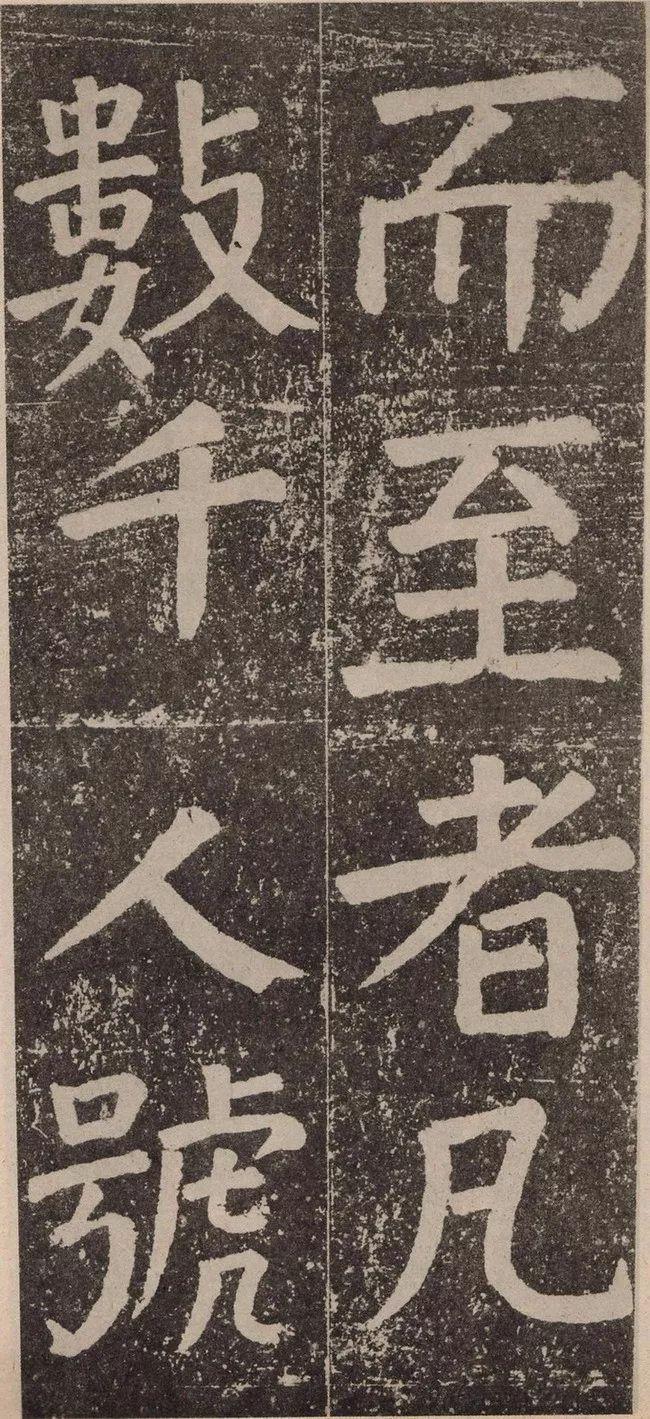 而至者凡
數千人號